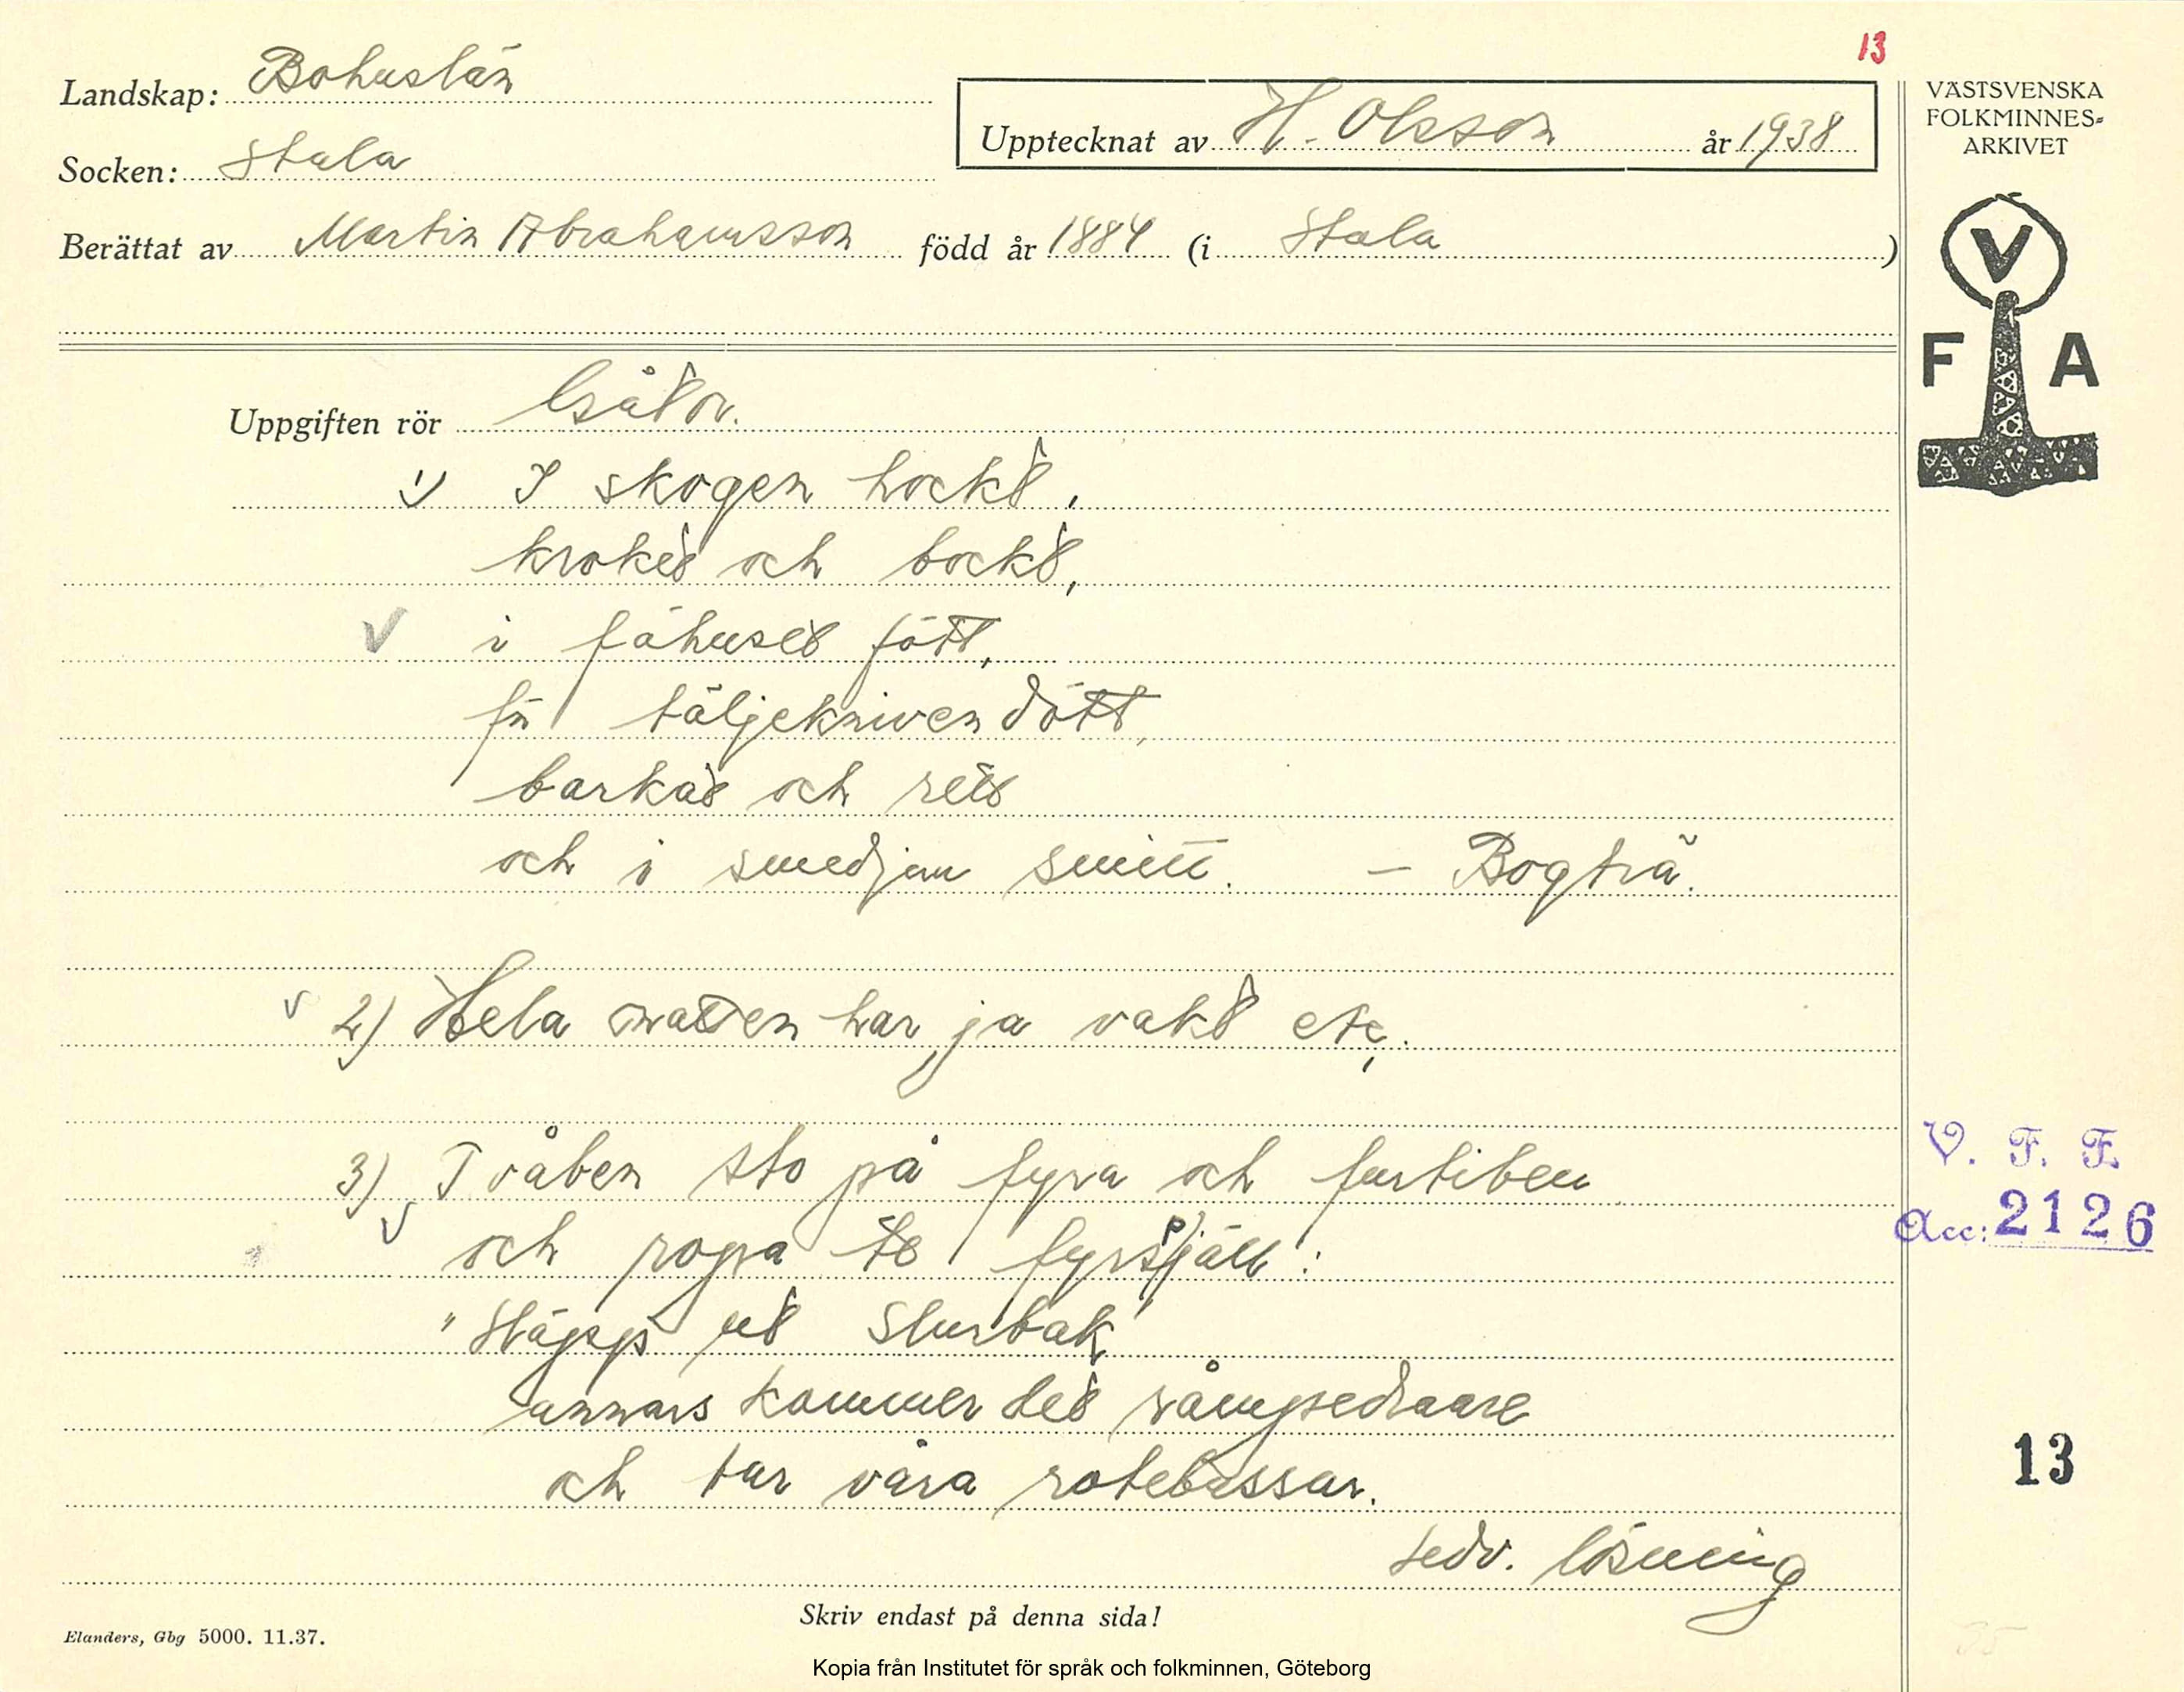 13
Landskap: Bohuslän
Socken: Stala
Upptecknat av H. Olsson år 1938
Berättat av Martin Abrahamsson född år 1884 (i Stala )
VÄSTSVENSKA
FOLKMINNES-
ARKIVET
V
F A
Uppgiften rör Gåtor.
1) I skogen hockt,
kroket och bockt,
i fähuset fött,
för täljekniven dött,
barkat och rett
och i smedjan smitt. – Bogträ.
2) Hela natten har ja vakt etc.
3) Tvåben sto på fyra och furtiben
och ropa te fyrspjäll:
"Släpp ut Slurbak
annars kommer det
och tar våra rotebassar.
sedv. lösning
V. F. F.
Acc: 2126
13
Skriv endast på denna sida!
Elanders, Gbg 5000. 11.37.
Kopia från Institutet för språk och folkminnen, Göteborg